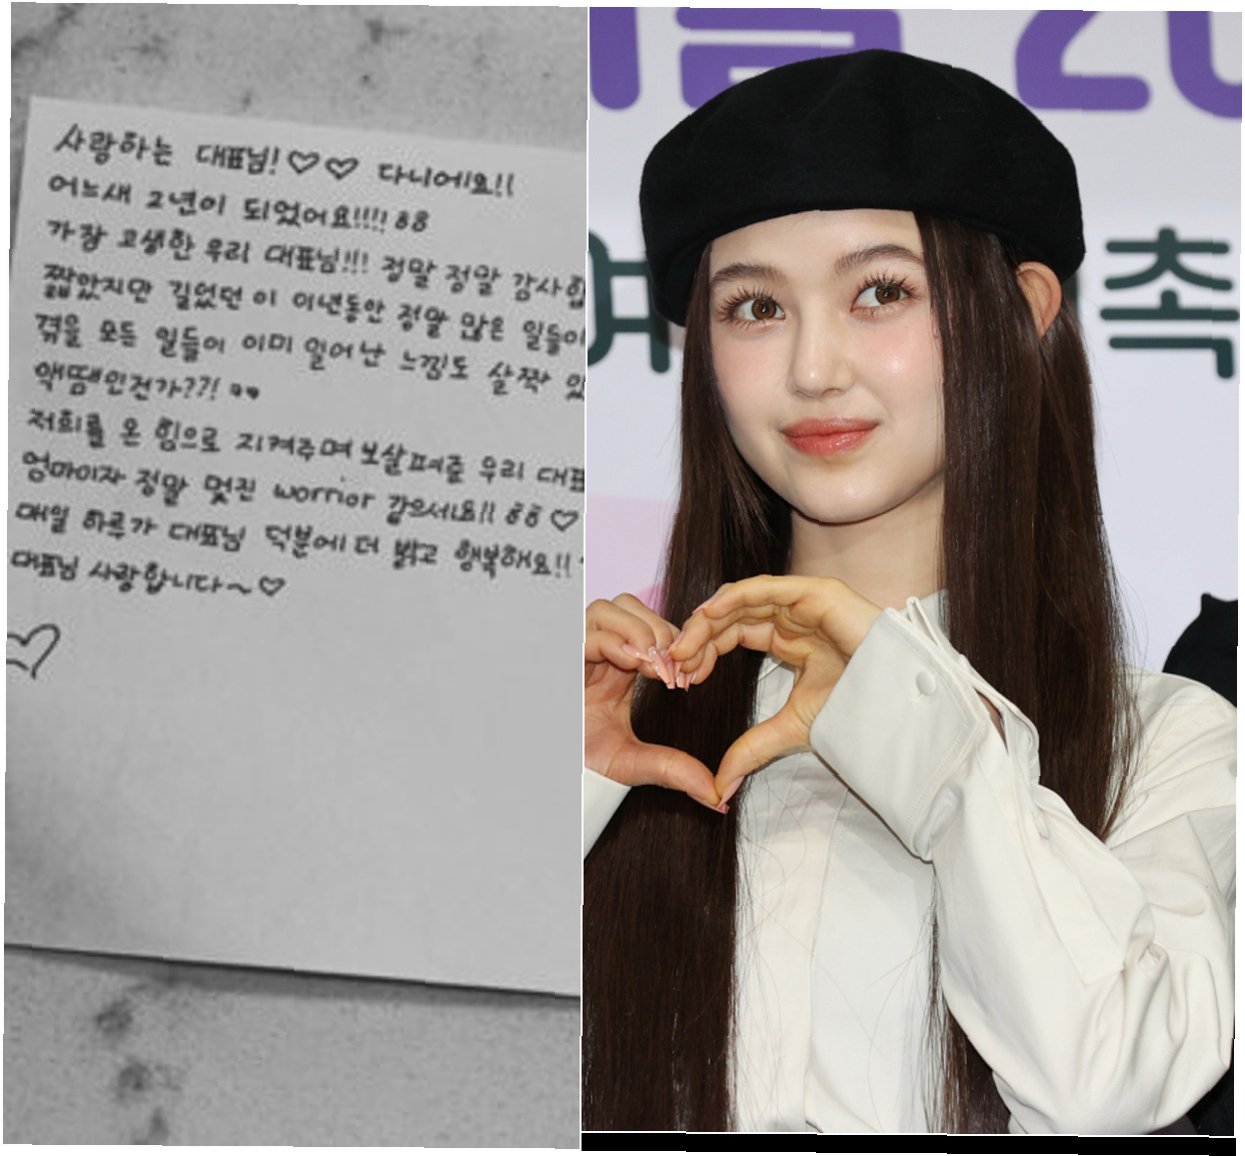 사랑하는 대표님!♡♡ 다니에요!!
어느새 2년이 되었어요!!!! 88
가장 고생한 우리 대표님!!! 정말 정말 감사합
짧았지만 길었던 이 이년동안 정말 많은 일들이
겪을 모든 일들이 이미 일어난 느낌도 살짝 있
액땜인건가??!
저희를 온 힘으로 지켜주며 보살펴준 우리 대표
엄마이자 정말 멋진 worrior 같으세요!! 88♡
매일 하루가 대표님 덕분에 더 밝고 행복해요!!
대표님 사랑합니다~♡
여
촉